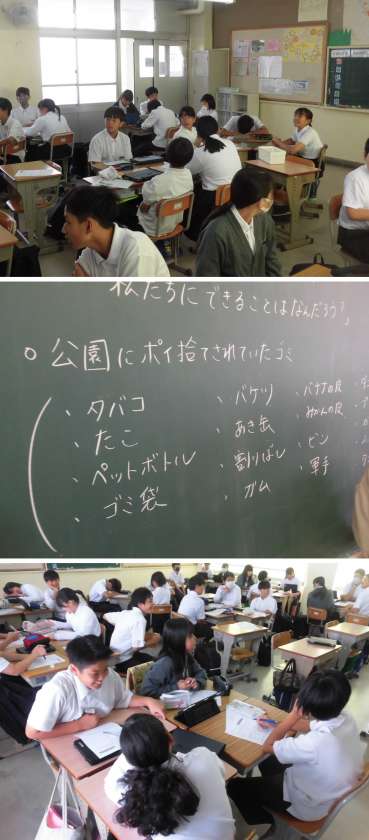 私たちにできることはなんだろう?
○ 公園にポイ捨てされていたゴミ
・タバコ ・バケツ ・バナナの皮
・たこ ・あき缶 ・みかんの皮
・ペットボトル ・割りばし ・ビン
・ゴミ袋 ・ガム ・軍手